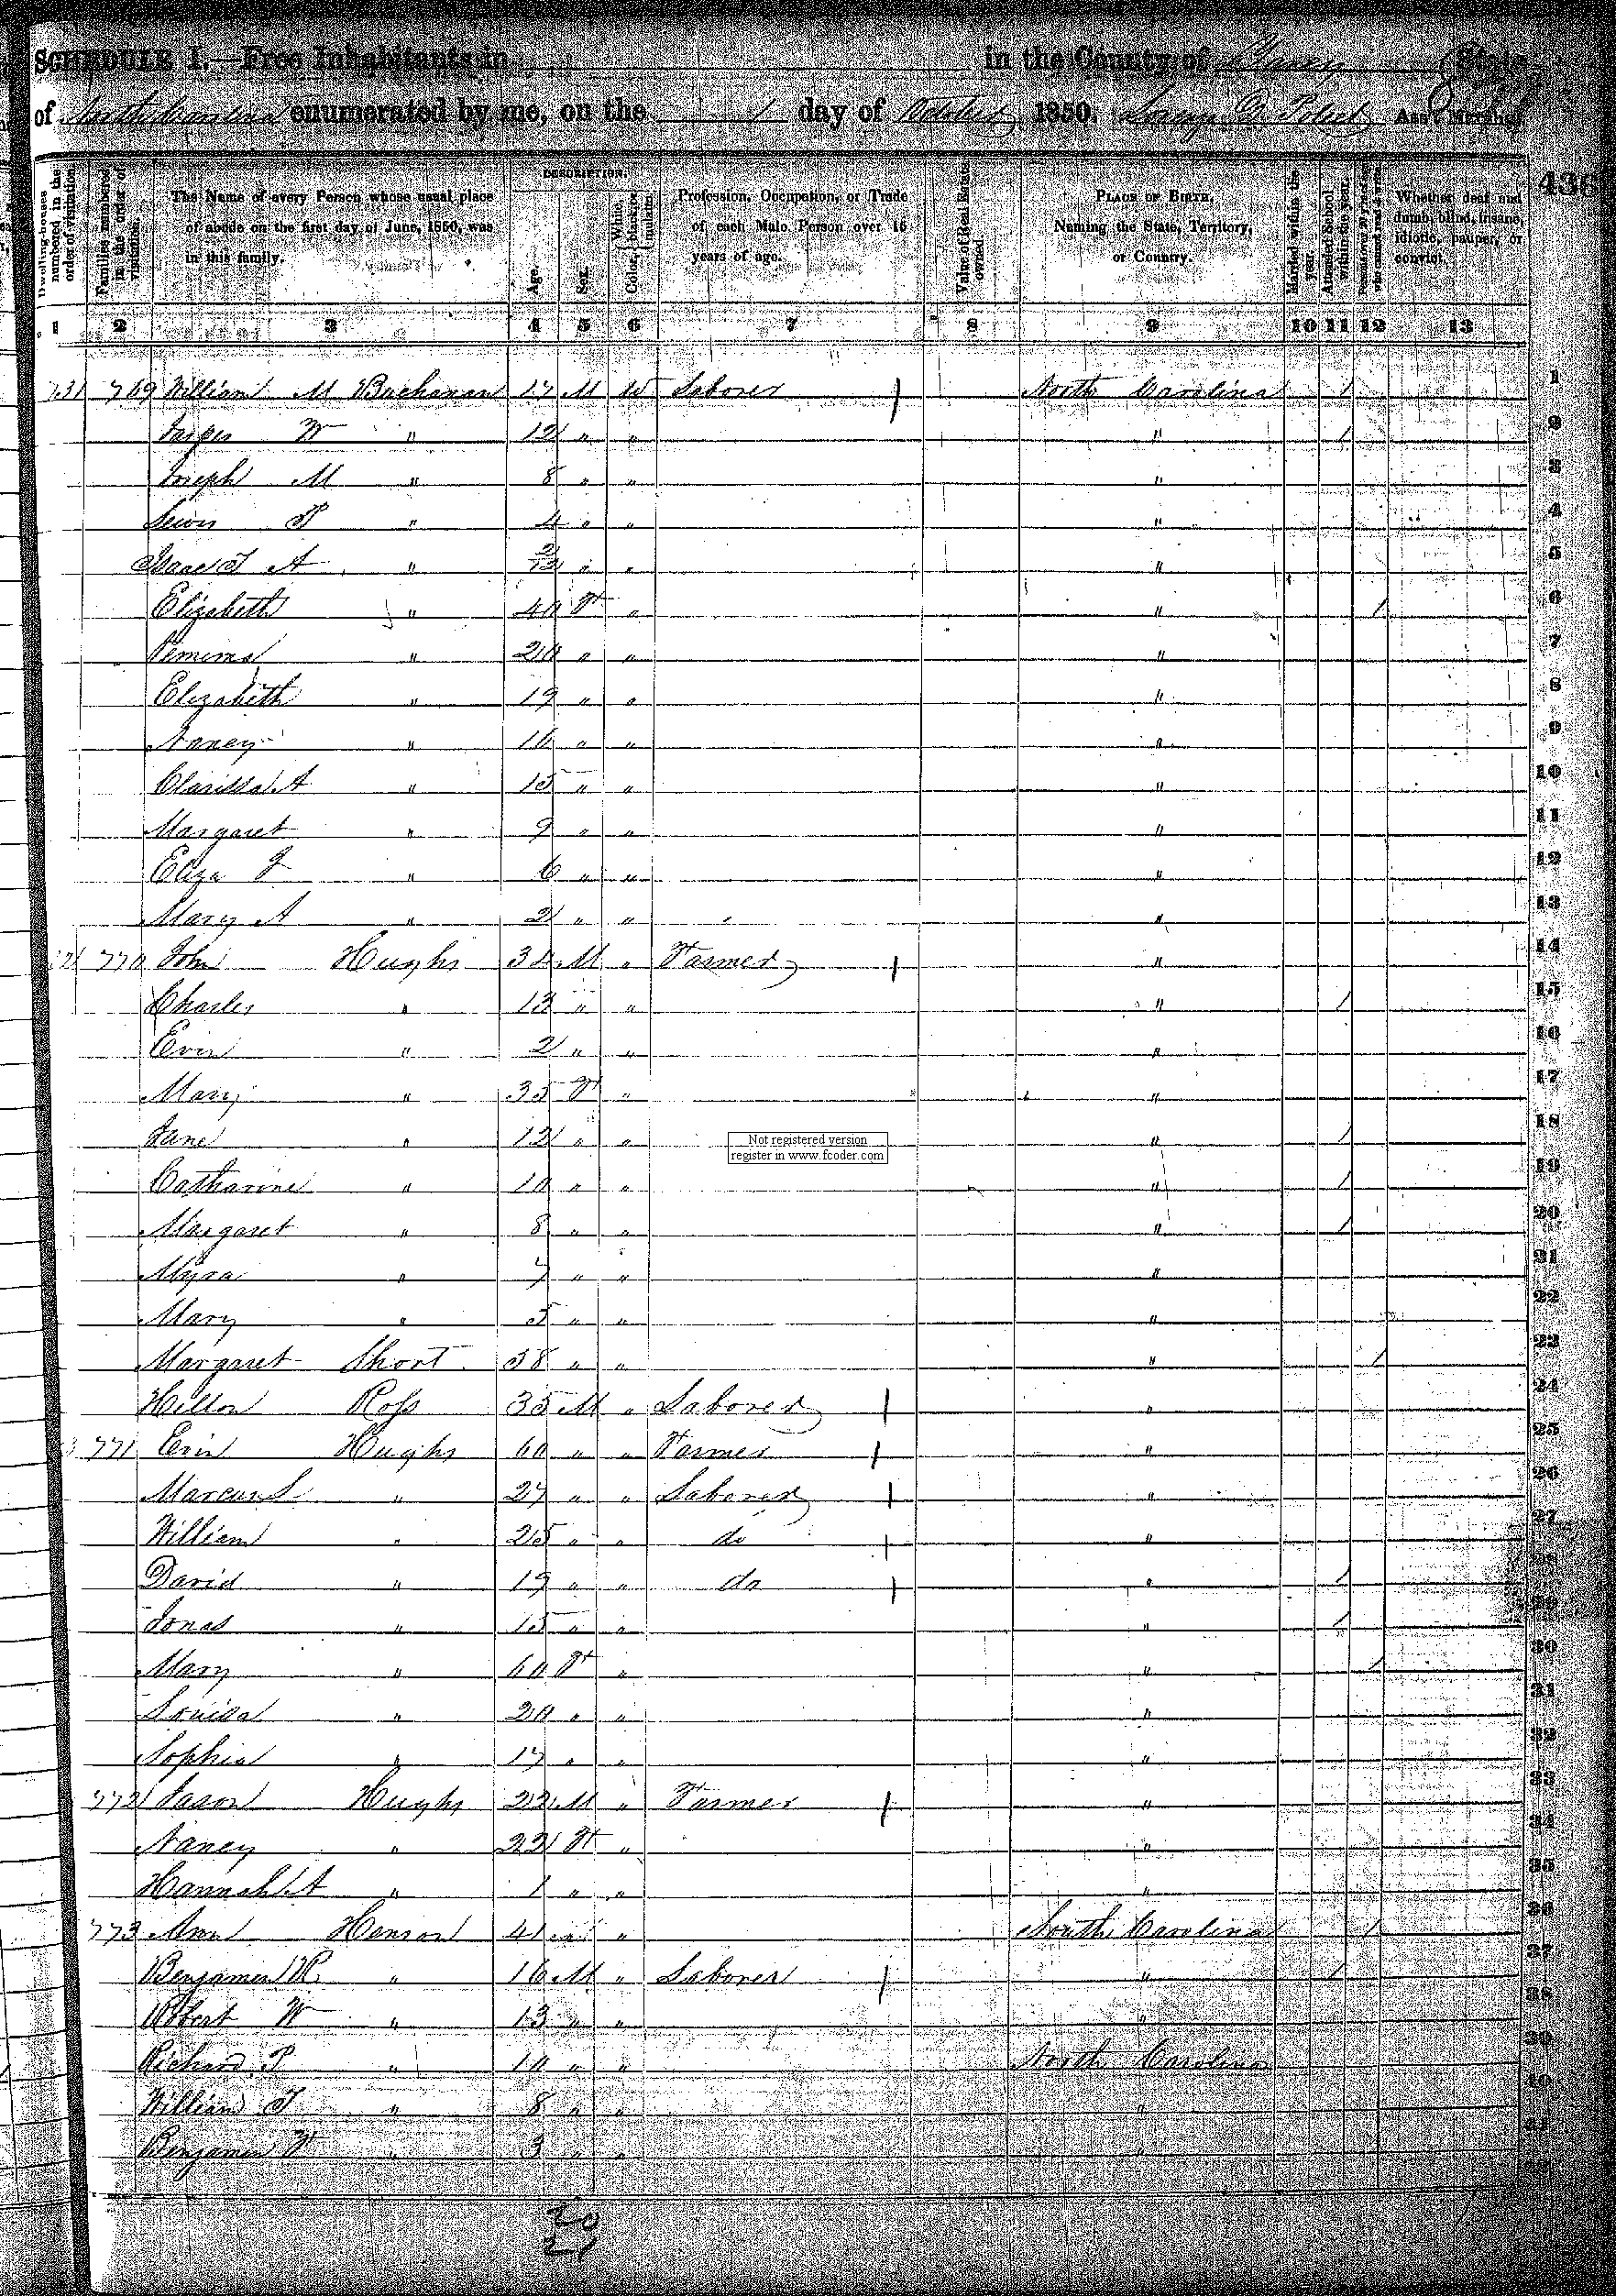 SCHEDULE I.—Free Inhabitants in in the County of Yancey State
of North Carolina enumerated by me, on the 1 day of October 1850. Ass't Marshal.
436
Dwelling-houses numbered in the order of visitation.
Families numbered in the order of visitation.
The Name of every Person whose usual place of abode on the first day of June, 1850, was in this family.
DESCRIPTION.
Age.
Sex.
White, black, or mulatto.
Color,
Profession, Occupation, or Trade of each Male Person over 15 years of age.
Value of Real Estate owned.
PLACE OF BIRTH. Naming the State, Territory, or Country.
Married within the year.
Attended School within the year.
Persons over 20 y'rs of age who cannot read & write.
Whether deaf and dumb, blind, insane, idiotic, pauper, or convict.
1 2 3 4 5 6 7 8 9 10 11 12 13
731 769 William M Buchanan 17 M W Laborer North Carolina 1 1
Jasper W " 12 " " " 1 2
Joseph M " 8 " " " 3
Lewis P " 4 " " " 4
Isaac T A " 2/12 " " " 5
Elizabeth " 40 F " " 1 6
Jemima " 20 " " " 7
Elizabeth " 19 " " " 8
Nancy " 16 " " " 9
Clarissa A " 15 " " " 10
Margaret " 9 " " " 11
Eliza J " 6 " " " 12
Mary A " 2 " " " 13
770 John Hughs 34 M " Farmer " 14
Charles " 13 " " " 1 15
Evin " 2 " " " 16
Mary " 35 F " " 17
Jane " 12 " " " 1 18
Not registered version
register in www.fcoder.com
Catharine " 10 " " " 1 19
Margaret " 8 " " " 1 20
Myra " 7 " " " 21
Mary " 5 " " " 22
Margaret Short 38 " " " 1 23
Hilton Ross 35 M " Laborer " 24
771 Evin Hughs 60 " " Farmer " 25
Marcus L " 27 " " Laborer " 26
William " 25 " " do " 27
David " 19 " " do " 1 28
Jonas " 15 " " " 1 29
Mary " 60 F " " 1 30
Louisa " 20 " " " 31
Sophia " 17 " " " 32
772 Jason Hughs 22 M " Farmer " 33
Nancy " 22 F " " 34
Hannah A " 1 " " " 35
773 Ann Henson 41 " " South Carolina 1 36
Benjamen R " 16 M " Laborer " 1 37
Robert W " 13 " " " 38
Richard P " 10 " " North Carolina 39
William T " 8 " " " 40
Benjamen F " 3 " " " 41
20
21